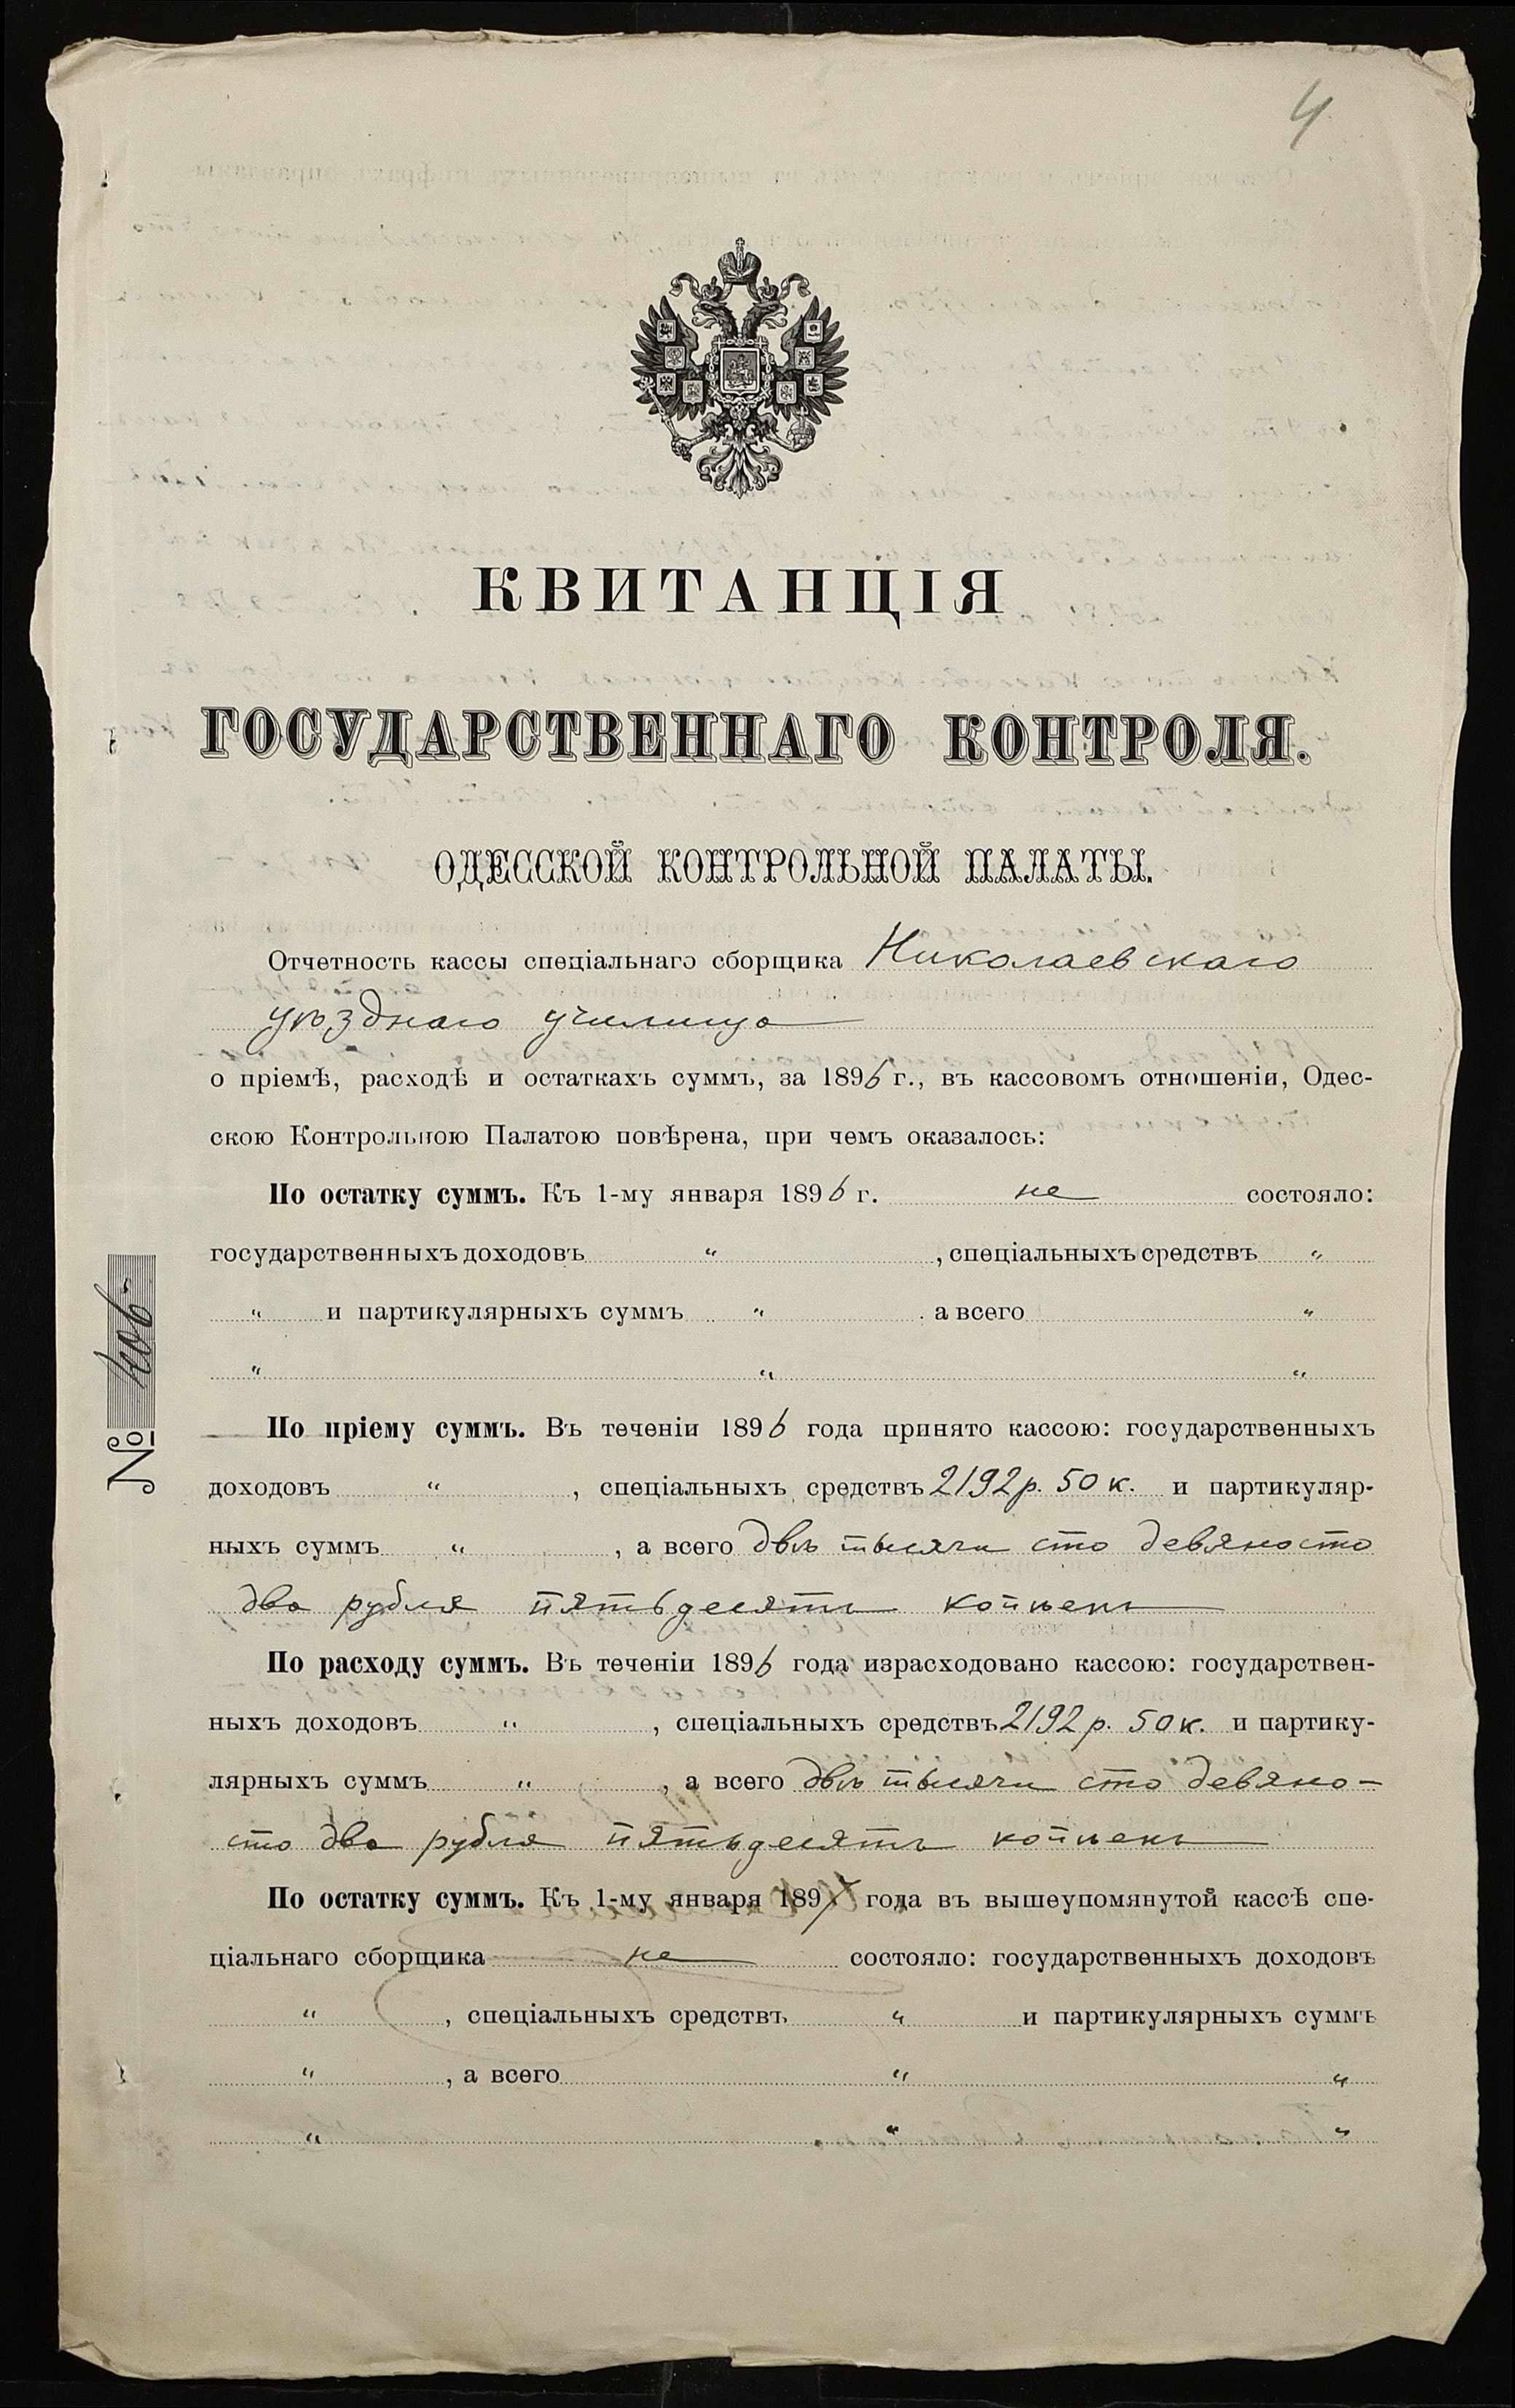 4
КВИТАНЦІЯ
ГОСУДАРСТВЕННАГО КОНТРОЛЯ.
ОДЕССКОЙ КОНТРОЛЬНОЙ ПАЛАТЫ.
Отчетность кассы спеціальнаго сборщика Николаевскаго
уѣзднаго училища
о пріемѣ, расходѣ и остаткахъ суммъ, за 1896 г., въ кассовомъ отношеніи, Одес-
скою Контрольною Палатою повѣрена, при чемъ оказалось:
По остатку суммъ. Къ 1-му января 1896 г. не состояло:
государственныхъ доходовъ " , спеціальныхъ средствъ "
" и партикулярныхъ суммъ " а всего "
" " "
№ 406
По пріему суммъ. Въ теченіи 1896 года принято кассою: государственныхъ
доходовъ " , спеціальныхъ средствъ 2192 р. 50 к. и партикуляр-
ныхъ суммъ " , а всего двѣ тысячи сто девяносто
два рубля пятьдесятъ копѣекъ
По расходу суммъ. Въ теченіи 1896 года израсходовано кассою: государствен-
ныхъ доходовъ " , спеціальныхъ средствъ 2192 р. 50 к. и партику-
лярныхъ суммъ " , а всего двѣ тысячи сто девяно-
сто два рубля пятьдесятъ копѣекъ
По остатку суммъ. Къ 1-му января 1897 года въ вышеупомянутой кассѣ спе-
ціальнаго сборщика не состояло: государственныхъ доходовъ
" , спеціальныхъ средствъ " и партикулярныхъ суммъ
" , а всего " "
" " "